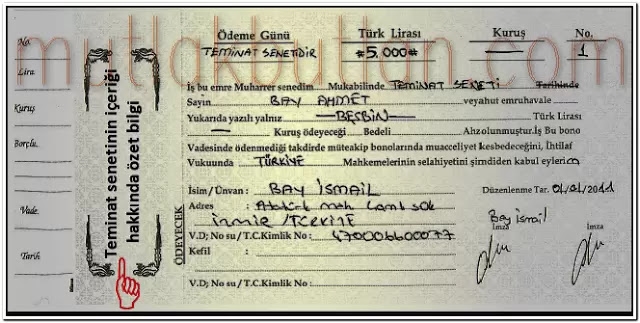 mutlakbutlan.com
No.
Lira
Kuruş
Borçlu
Vade
Tarih
Teminat senetinin içeriği
hakkında özet bilgi
Ödeme Günü Türk Lirası Kuruş No.
TEMİNAT SENETİDİR #5.000# — 1
İş bu emre Muharrer senedim Mukabilinde TEMİNAT SENETİ Tarihinde
Sayın BAY AHMET veyahut emruhavale
Yukarıda yazılı yalnız —BEŞBİN— Türk Lirası
— Kuruş ödeyeceği Bedeli Ahzolunmuştur. İş Bu bono
Vadesinde ödenmediği takdirde müteakip bonolarında muacceliyet kesbedeceğini, İhtilaf
Vukuunda TÜRKİYE Mahkemelerinin selahiyetini şimdiden kabul eylerim
ÖDEYECEK
İsim / Ünvan : BAY İSMAİL Düzenlenme Tar.
Adres : Atatürk mah
V.D; No su / T.C.Kimlik No : 47000660007
Kefil :
Bay ismail
İmza İmza
V.D; No su / T.C.Kimlik No :